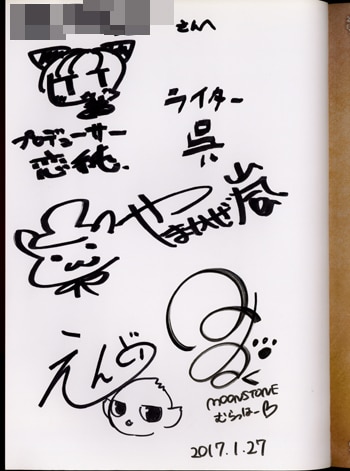 さんへ
ライター
呉
プロデューサー
恋純
やまかぜ嵐
えんどの
MOONSTONE
むらっはー♡
2017.1.27